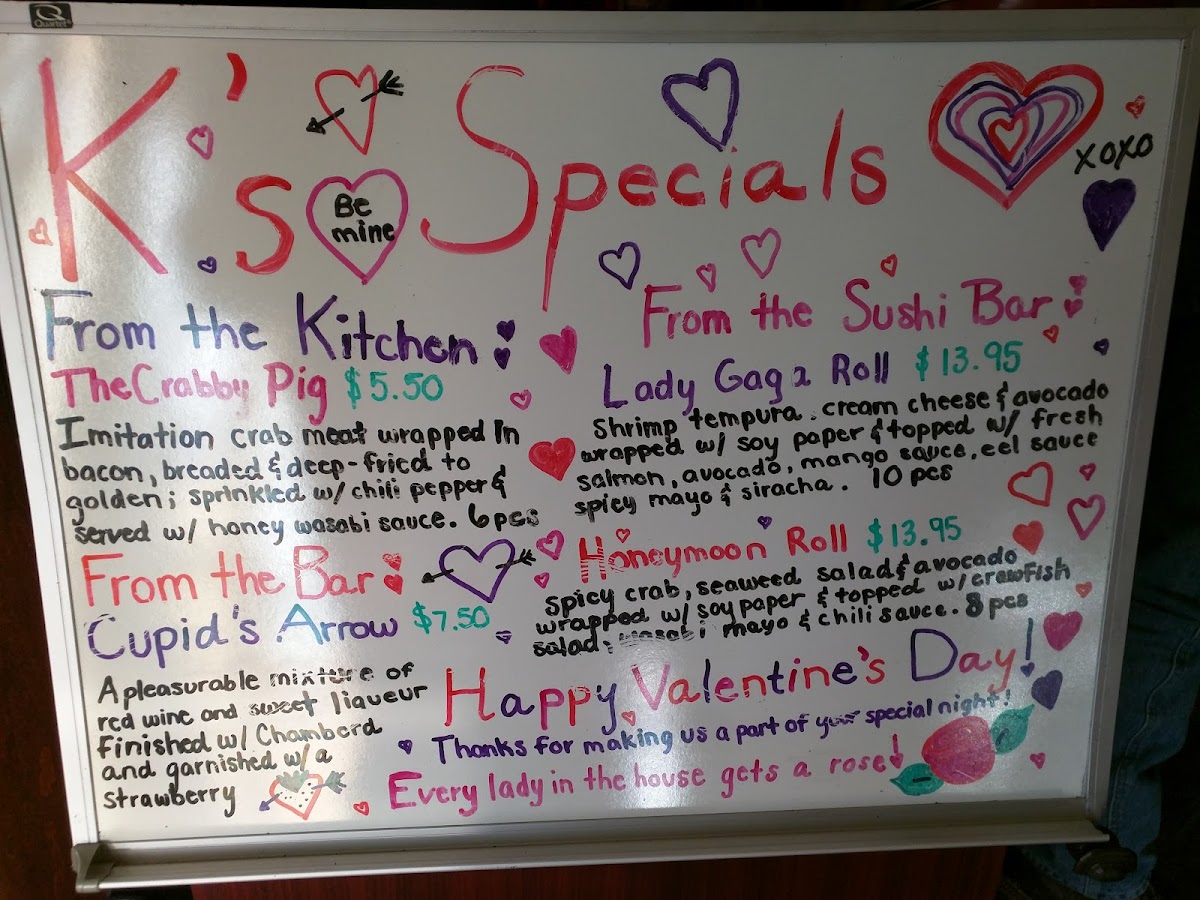 Quartet
K's Specials
Be
mine
xoxo
From the Kitchen
The Crabby Pig $5.50
Imitation crab meat wrapped in
bacon, breaded & deep-fried to
golden; sprinkled w/ chili pepper &
served w/ honey wasabi sauce. 6 pcs
From the Bar
Cupid's Arrow $7.50
A pleasurable mixture of
red wine and sweet liqueur
Finished w/ Chambord
and garnished w/ a
strawberry
From the Sushi Bar
Lady Gaga Roll $13.95
Shrimp tempura, cream cheese & avocado
wrapped w/ soy paper & topped w/ fresh
salmon, avocado, mango sauce, eel sauce
spicy mayo & siracha. 10 pcs
Honeymoon Roll $13.95
Spicy crab, seaweed salad & avocado
wrapped w/ soy paper & topped w/ crawfish
salad; wasabi mayo & chili sauce. 8 pcs
Happy Valentine's Day!
Thanks for making us a part of your special night!
Every lady in the house gets a rose!